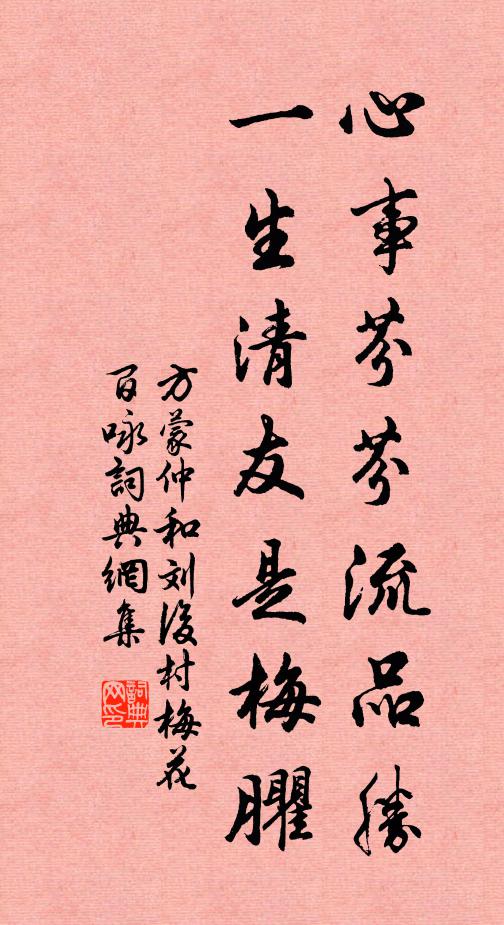 心事芬芬流品勝
一生清友是梅臞
方蒙仲和刘後村梅花
百咏詞典網集
詞典网印